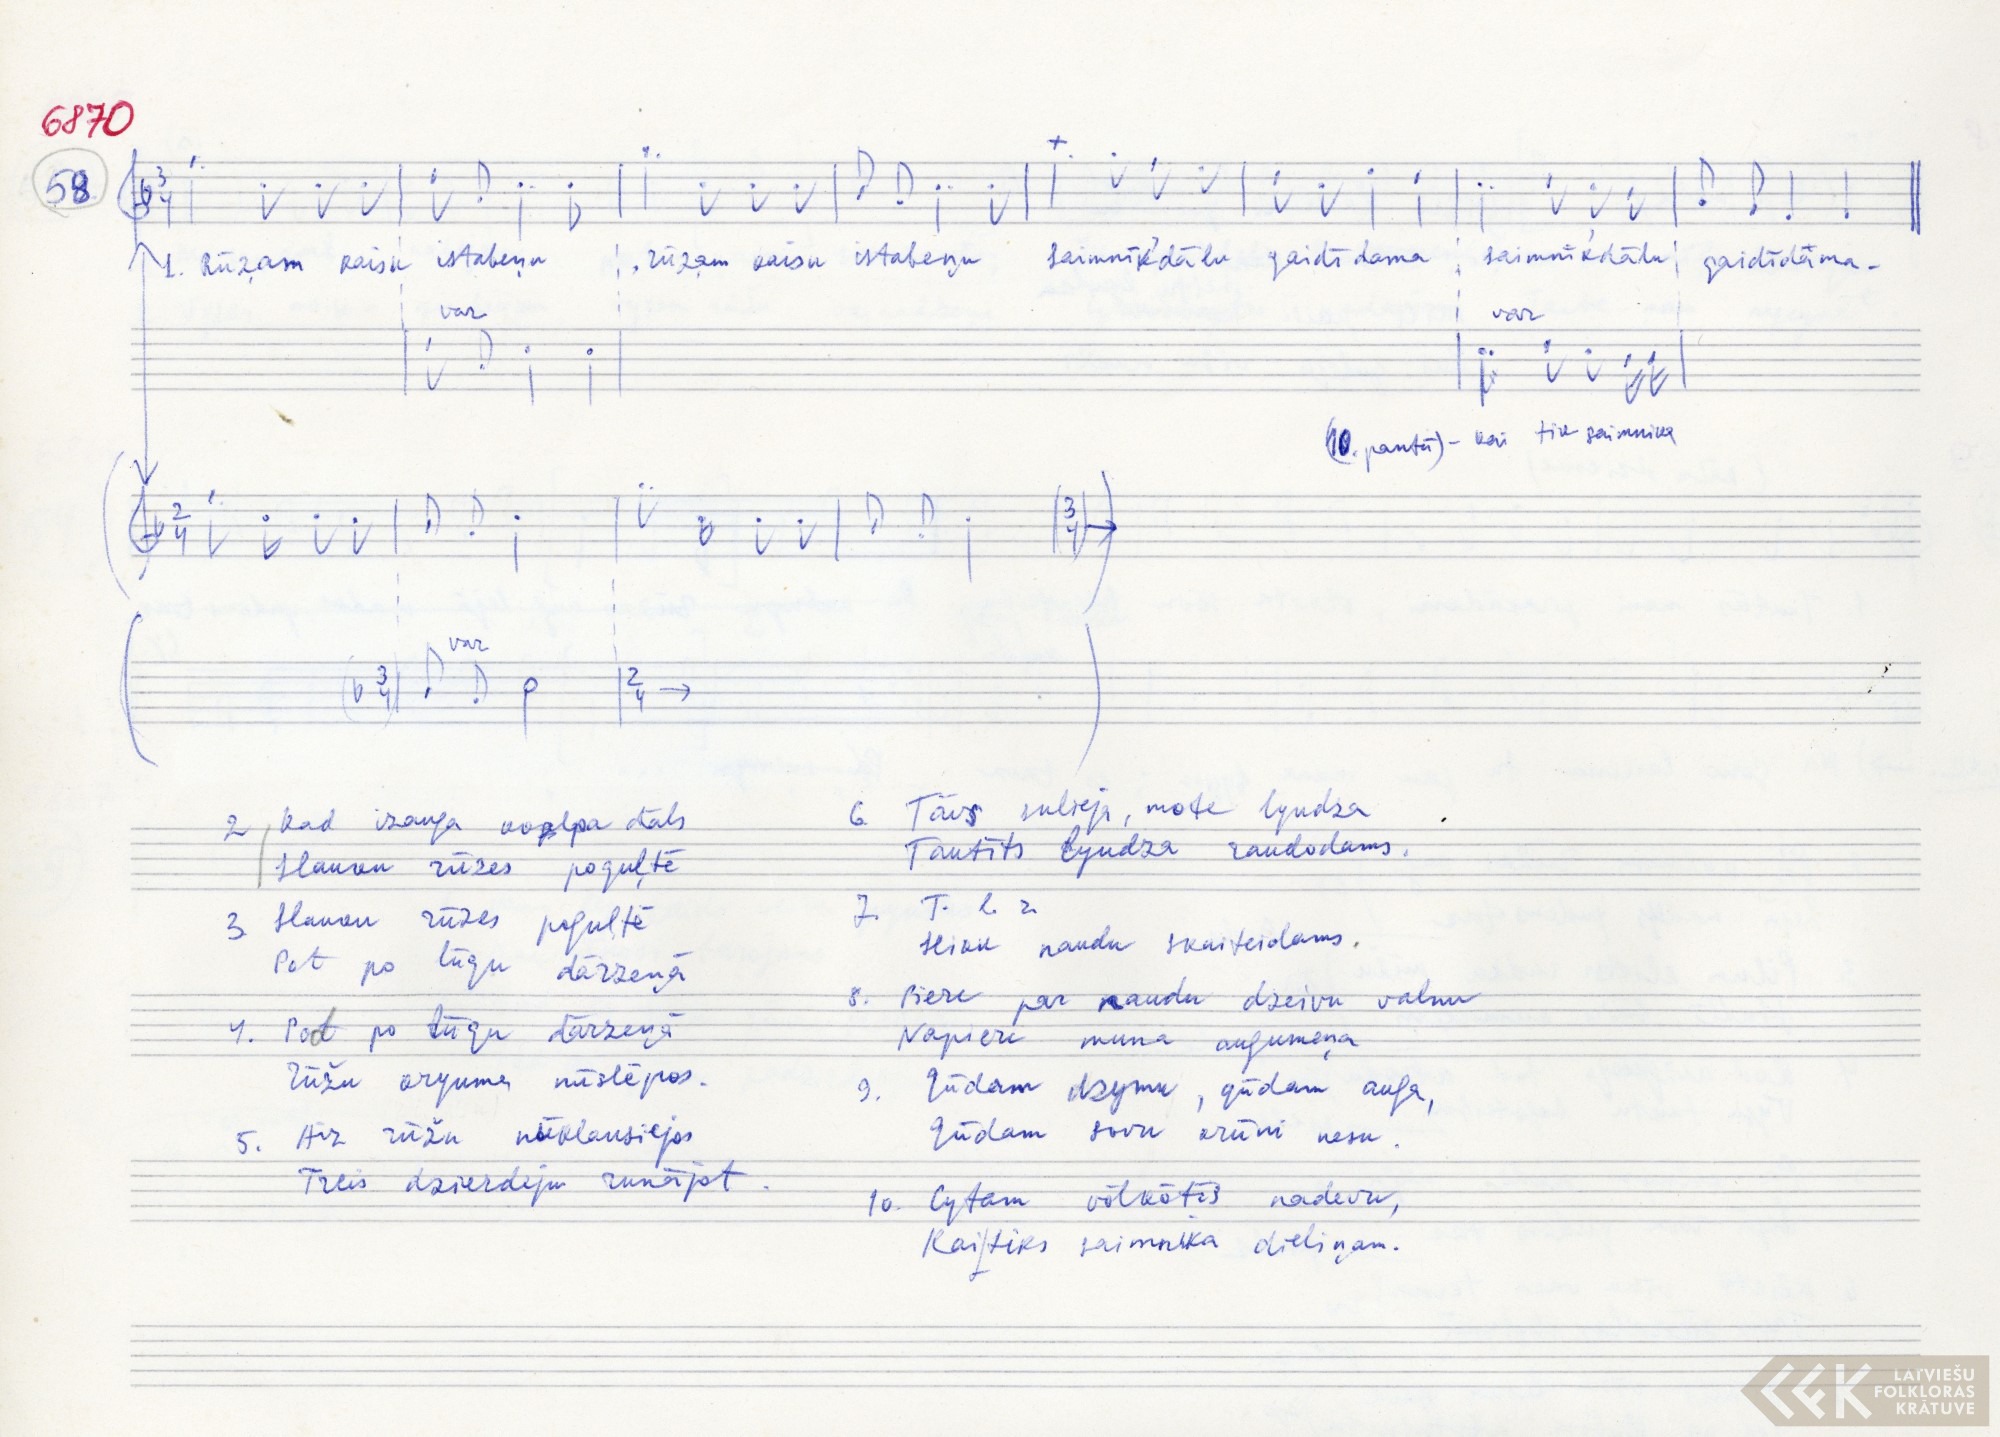 6870
58
3/4
1. Rūžam kaisu istabeņu , rūžam kaisu istabeņu saimnīkdālu gaidīdama saimnīkdālu gaidīdama.
var
var
(10. pantā) - kai tik saimnīka
2/4
(3/4) →
var
(3/4) 2/4 →
2. Kad izauga kolpa dāls
Slauku rūzes poguļtē
3. Slauku rūzes poguļtē
Pat po lūgu dārzeņā
4. Pat po lūgu dārzeņā
Rūžu kryumā nūslēpos.
5. Aiz rūžu nūklausiejos
Treis dzierdēju runōjot.
6. Tāvs sulieja, mote lyudza
Tautīts lyudza raudodams.
7. T. l. r.
Seiku naudu skaiteidams.
8. Pierc par naudu dzeivu valnu
Napierc muna augumeņa
9. Gūdam dzymu, gūdam auga,
Gūdam sovu krūni nesu.
10. Cytam vōlkōtīs nadevu,
Kai tiks saimnīka dieliņam.
LATVIEŠU
FOLKLORAS
KRĀTUVE